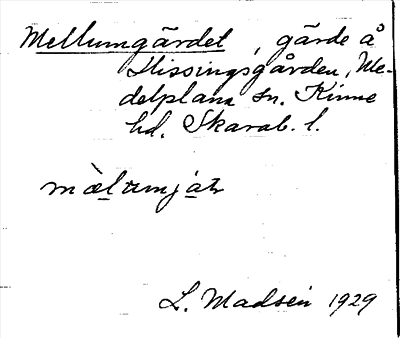 Mellumgärdet, gärde å
Hissingsgården, Me-
delplana sn. Kinne
hd. Skarab. l.
L. Madsén 1929